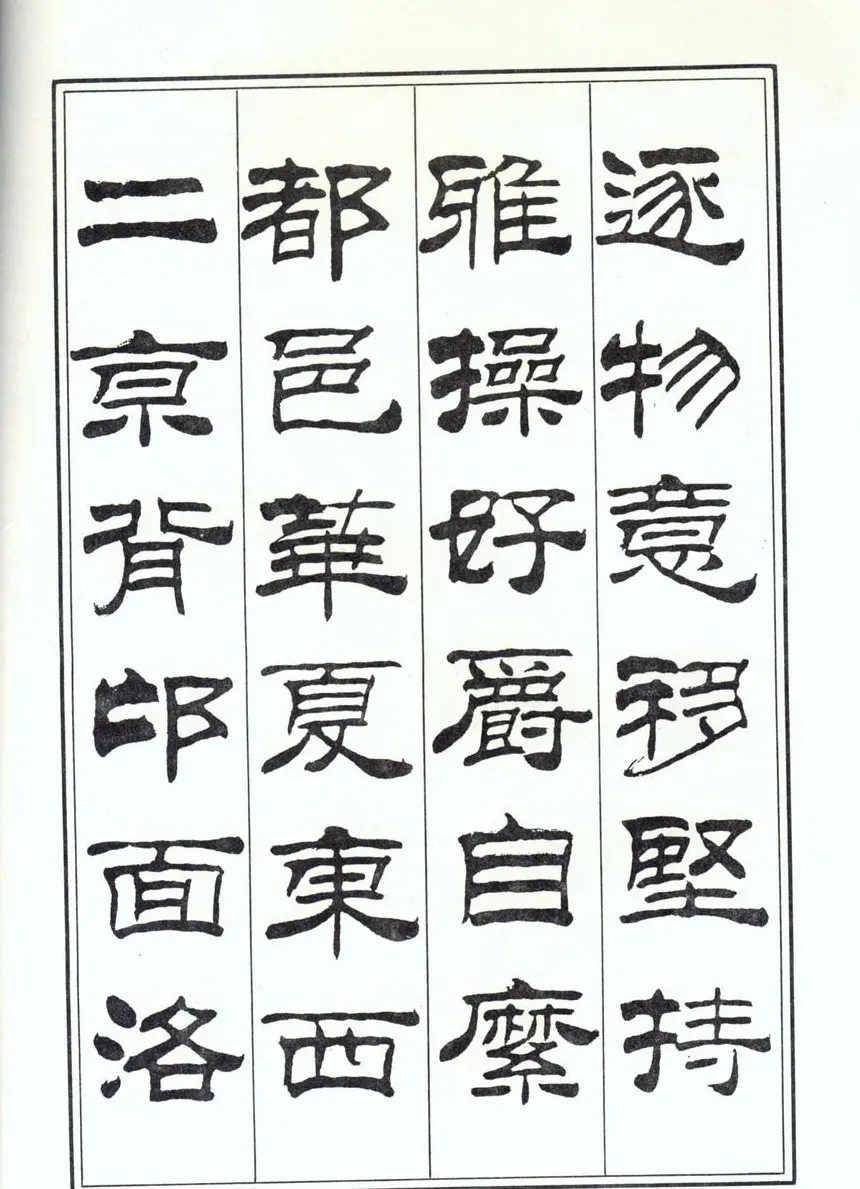 逐物意移堅持
雅操好爵自縻
都邑華夏東西
二京背邙面洛